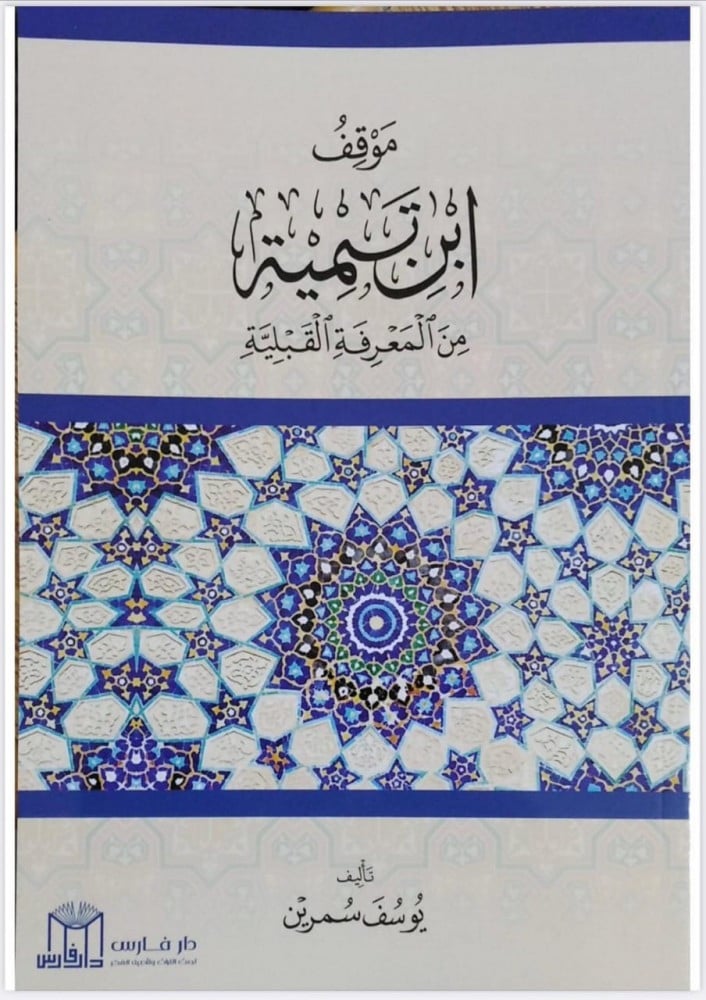 مَوْقِفُ
ابْنِ تَيْمِيَّة
مِنَ الْمَعْرِفَةِ الْقَبْلِيَّةِ
تَأْلِيف
يُوسُفَ سمرين
دار فارس
دار فارس